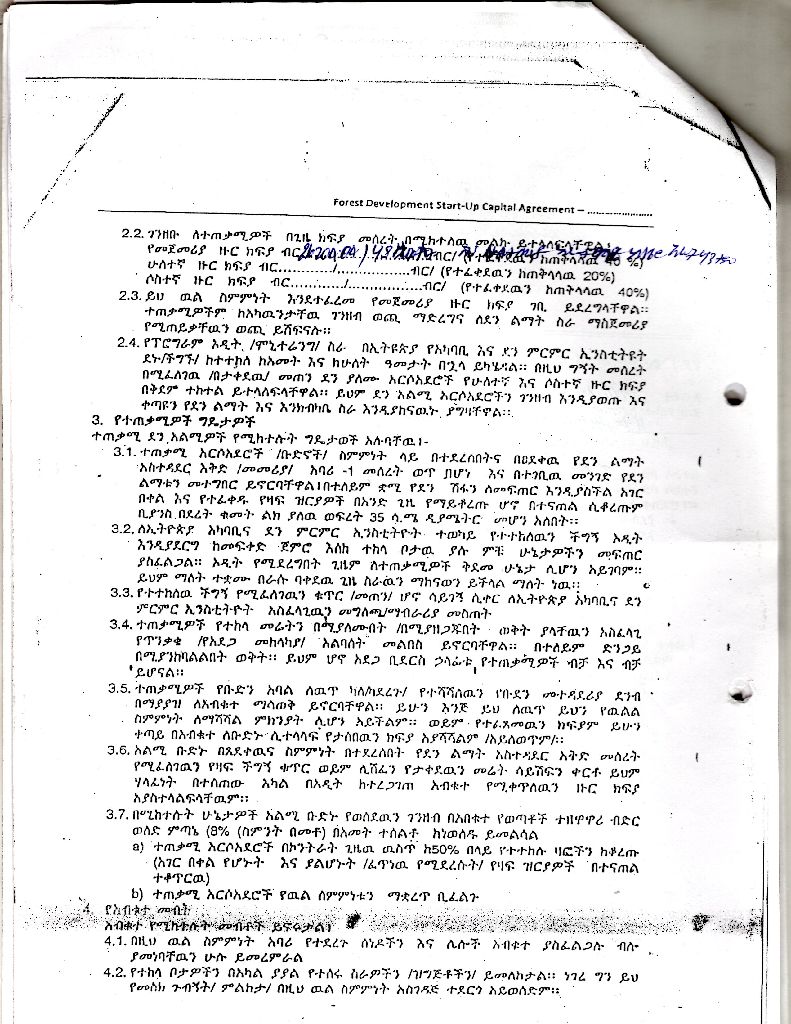 Forest Development Start-Up Capital Agreement – ......................
2.2. ገንዘቡ ለተጠቃሚዎች በጊዜ ክፍያ መሰረት በሚከተለዉ መልኩ ይተላለፍላቸዋል፤
የመጀመሪያ ዙር ክፍያ ብር ብር/ (የተፈቀደዉን ከጠቅላላዉ 40 %)
ሁለተኛ ዙር ክፍያ ብር............/................ብር/ (የተፈቀደዉን ከጠቅላላዉ 20%)
ሶስተኛ ዙር ክፍያ ብር............/................ብር/ (የተፈቀደዉን ከጠቅላላዉ 40%)
2.3. ይህ ዉል ስምምነት እንደተፈረመ የመጀመሪያ ዙር ክፍያ ገቢ ይደረግላቸዋል።
ተጠቃሚዎችም ከአካዉንታቸዉ ገንዘብ ወጪ ማድረግና ለደን ልማት ስራ ማስጀመሪያ
የሚጠይቃቸዉን ወጪ ይሸፍናሉ።
2.4. የፕሮግራም ኦዲት /ሞኒተሬንግ/ ስራ በኢትዩጵያ የአካባቢ እና ደን ምርምር ኢንስቲትዩት
ደኑ/ችግኙ/ ከተተከለ ከአመት እና ከሁለት ዓመታት በኋላ ይካሄዳል። በዚህ ግኝት መሰረት
በሚፈለገዉ /በታቀደዉ/ መጠን ደን ያለሙ አርሶአደሮች የሁለተኛ እና ሶስተኛ ዙር ክፍያ
በቅደም ተከተል ይተላለፍላቸዋል። ይህም ደን አልሚ አርሶአደሮችን ገንዘብ እንዲያወጡ እና
ቀጣዩን የደን ልማት እና እንክብካቤ ስራ እንዲያከናዉኑ ያግዛቸዋል።
3. የተጠቃሚዎች ግዴታዎች
ተጠቃሚ ደን አልሚዎች የሚከተሉት ግዴታወች አሉባቸዉ፤-
3.1. ተጠቃሚ አርሶአደሮች /ቡድኖች/ ስምምነት ላይ በተደረሰበትና በፀደቀዉ የደን ልማት
አስተዳደር እቅድ /መመሪያ/ አባሪ -1 መሰረት ወጥ በሆነ እና በተገቢዉ መንገድ የደን
ልማቱን መተግበር ይኖርባቸዋል፤በተለይም ቋሚ የደን ሽፋን ለመፍጠር እንዲያስችል አገር
በቀል እና የተፈቀዱ የዛፍ ዝርያዎች በአንድ ጊዜ የማይቆረጡ ሆኖ በተናጠል ሲቆረጡም
ቢያንስ በደረት ቁመት ልክ ያለዉ ወፍረት 35 ሳ.ሜ ዲያሜትር መሆን አለበት።
3.2. ለኢትዮጵያ አካባቢና ደን ምርምር ኢንስቲትዮት ተወካይ የተተከለዉን ችግኝ ኦዲት
እንዲያደርግ ከመፍቀድ ጀምሮ እስከ ተከላ ቦታዉ ያሉ ምቹ ሁኔታዎችን መፍጠር
ያስፈልጋል። ኦዲት የሚደረግበት ጊዜም ለተጠቃሚዎች ቅደመ ሁኔታ ሊሆን አይገባም።
ይህም ማለት ተቋሙ በራሱ ባቀደዉ ጊዜ ስራዉን ማከናወን ይችላል ማለት ነዉ።
3.3. የተተከለዉ ችግኝ የሚፈለገዉን ቁጥር /መጠን/ ሆኖ ሳይገኝ ሲቀር ለኢትዮጵያ አካባቢና ደን
ምርምር ኢንስቲትዮት አስፈላጊዉን መግለጫ/ማብራሪያ መስጠት
3.4. ተጠቃሚዎች የተከላ መሬትን በሚያለሙበት /በሚያዘጋጁበት ወቅት ያላቸዉን አስፈላጊ
የጥንቃቄ /የአደጋ መከላከያ/ አልባሳት መልበስ ይኖርባቸዋል። በተለይም ድንጋይ
በሚያንከባልልበት ወቅት። ይህም ሆኖ አደጋ ቢደርስ ኃላፊቱ የተጠቃሚዎች ብቻ እና ብቻ
ይሆናል።
3.5. ተጠቃሚዎች የቡድን አባል ለዉጥ ካለ/ካደረጉ/ የተሻሻለዉን የቡድን መተዳደሪያ ደንብ
በማያያዝ ለአብቁተ ማሳወቅ ይኖርባቸዋል። ይሁን እንጅ ይህ ለዉጥ ይህን የዉልል
ስምምነት ለማሻሻል ምክንያት ሊሆን አይችልም። ወይም የተፈጸመዉን ክፍያም ይሁን
ቀጣይ በአብቁተ ለቡድኑ ሊተላላፍ የታሰበዉን ክፍያ አያሻሻልም /አይለወጥም/።
3.6. አልሚ ቡድኑ በጸደቀዉና ስምምነት በተደረሰበት የደን ልማት አስተዳደር እትድ መሰረት
የሚፈለገዉን የዛፍ ችግኝ ቁጥር ወይም ሊሸፈን የታቀደዉን መሬት ሳይሸፍን ቀርቶ ይህም
ሃላፊነት በተሰጠው አካል በኦዲት ከተረጋገጠ አብቁተ የሚቀጥለዉን ዙር ክፍያ
አያስተላልፍላቸዉም።
3.7. በሚከተሉት ሁኔታዎች አልሚ ቡድኑ የወሰደዉን ገንዘብ በአበቁተ የወጣቶች ተዘዋዋሪ ብድር
ወለድ ምጣኔ (8% (ስምንት በመቶ) በአመት ተሰልቶ ከነወለዱ ይመልሳል
a) ተጠቃሚ አርሶአደሮች በኮንትራት ጊዜዉ ዉስጥ ከ50% በላይ የተተከሉ ዛፎችን ከቆረጡ
(አገር በቀል የሆኑት እና ያልሆኑት /ፈጥነዉ የሚደረሱት/ የዛፍ ዝርያዎች በተናጠል
ተቆጥርዉ)
b) ተጠቃሚ አርሶአደሮች የዉል ስምምነቱን ማቋረጥ ቢፈልጉ
4. የአብቁተ መብት
አብቁተ የሚከተሉት መብቶች ይኖሩታል፤
4.1. በዚህ ዉል ስምምነት አባሪ የተደረጉ ሰነዶችን እና ሌሎች አብቁተ ያስፈልጋሉ ብሎ
ያመነባቸዉን ሁሉ ይመረምራል
4.2. የተከላ ቦታዎችን በአካል ያያል የተሰሩ ስራዎችን /ዝግጅቶችን/ ይመለከታል። ነገረ ግን ይህ
የመስክ ጉብኝት/ ምልከታ/ በዚህ ዉል ስምምነት አስገዳጅ ተደርጎ አይወሰድም።